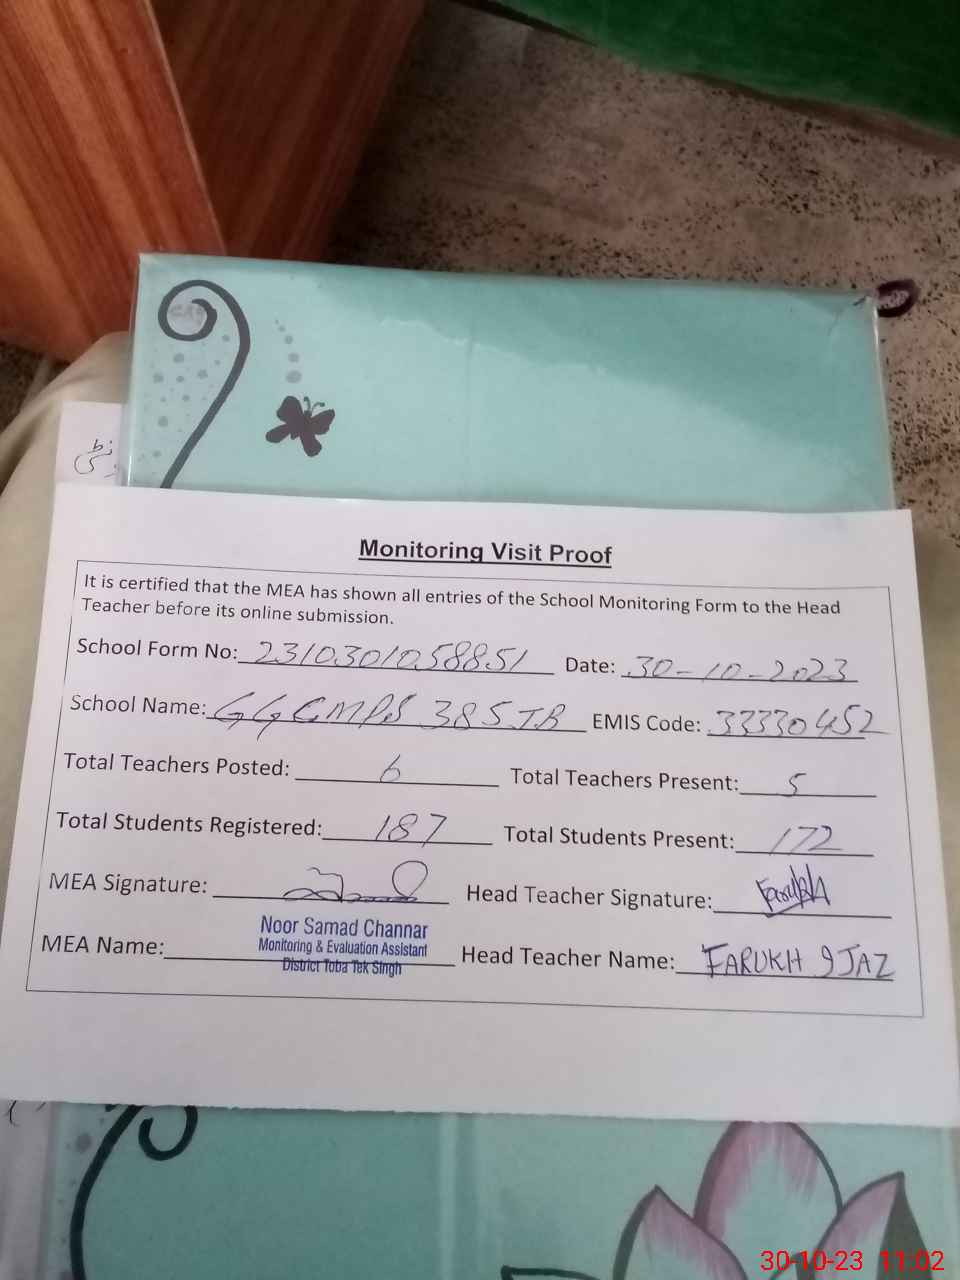 Monitoring Visit Proof
It is certified that the MEA has shown all entries of the School Monitoring Form to the Head
Teacher before its online submission.
School Form No: 2310301058851 Date: 30-10-2023
School Name: GGCMPS 385 JB EMIS Code: 33330452
Total Teachers Posted: 6 Total Teachers Present: 5
Total Students Registered: 187 Total Students Present: 172
MEA Signature: Head Teacher Signature: Farukh
MEA Name: Noor Samad Channar
Monitoring & Evaluation Assistant
District Toba Tek Singh
Head Teacher Name: FARUKH IJAZ
30-10-23 11:02